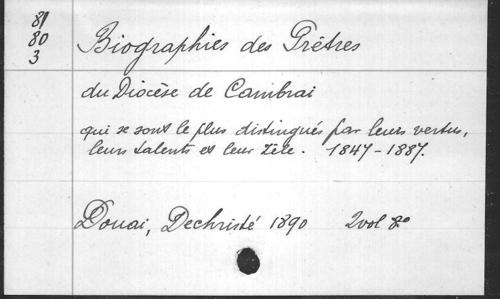 81
80
3
Biographies des Prêtres
du Diocèse de Cambrai
qui se sont le plus distingués par leurs vertus,
leurs talents et leur zèle. 1847-1887.
Douai, Dechristé 1890 2 vol 8°